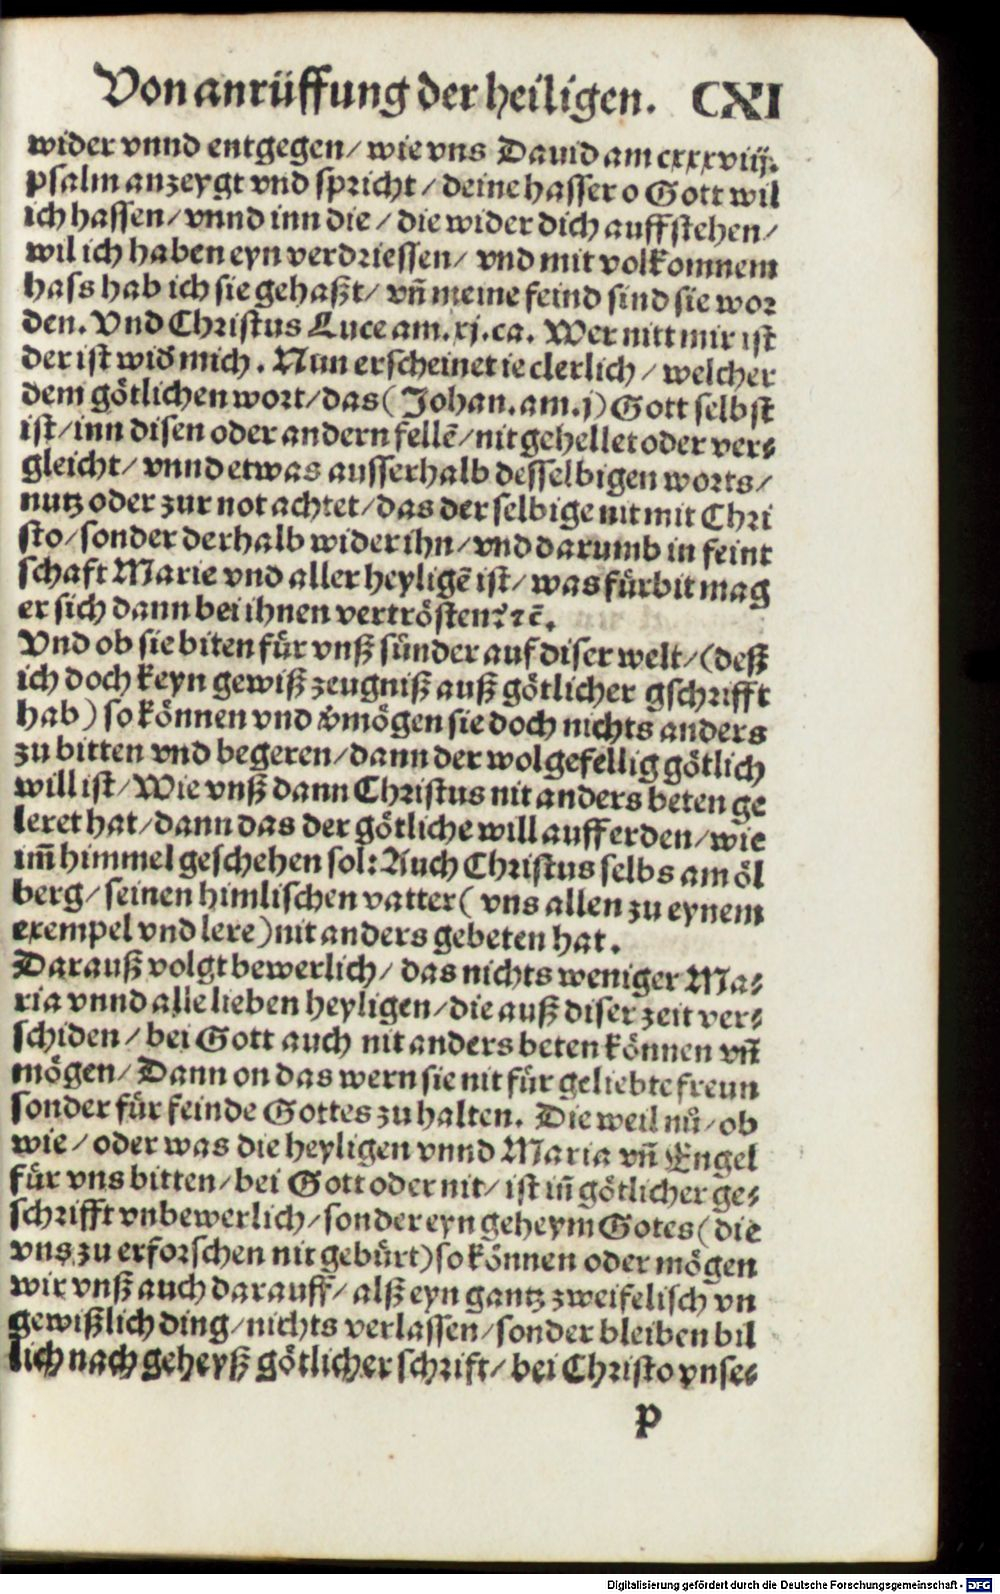 Von anrüffung der heiligen. CXI
wider vnnd entgegen/ wie vns Dauid am cxxxviij.
psalm anzeygt vnd spricht/ deine hasser o Gott wil
ich hassen/ vnnd inn die/ die wider dich auffstehen/
wil ich haben eyn verdriessen/ vnd mit volkommem
hass hab ich sie gehaßt/ vñ meine feind sind sie wor
den. Vnd Christus Luce am. xj. ca. Wer nitt mir ist
der ist wiď mich. Nun erscheinet ie clerlich/ welcher
dem götlichen wort/ das (Johan. am. j) Gott selbst
ist/ inn disen oder andern fellẽ/ nit gehellet oder ver⸗
gleicht/ vnnd etwas ausserhalb desselbigen worts/
nutz oder zur not achtet/ das der selbige nit mit Chri
sto/ sonder derhalb wider ihn/ vnd darumb in feint
schaft Marie vnd aller heyligẽ ist/ was fürbit mag
er sich dann bei ihnen vertrösten? ⁊c̃.
Vnd ob sie biten für vnß sünder auf diser welt/ (deß
ich doch keyn gewiß zeugniß auß götlicher gschrifft
hab) so können vnd v̊mögen sie doch nichts anders
zu bitten vnd begeren/ dann der wolgefellig götlich
will ist/ Wie vnß dann Christus nit anders beten ge
leret hat/ dann das der götliche will auff erden/ wie
im̃ himmel geschehen sol: Auch Christus selbs am öl
berg/ seinen himlischen vatter (vns allen zu eynem
exempel vnd lere) nit anders gebeten hat.
Darauß volgt bewerlich/ das nichts weniger Ma⸗
ria vnnd alle lieben heyligen/ die auß diser zeit ver⸗
schiden/ bei Gott auch nit anders beten können vñ
mögen/ Dann on das wern sie nit für geliebte freun
sonder für feinde Gottes zu halten. Die weil nů/ ob
wie/ oder was die heyligen vnnd Maria vñ Engel
für vns bitten/ bei Gott oder nit/ ist iñ götlicher ge⸗
schrifft vnbewerlich/ sonder eyn geheym Gotes (die
vns zu erforschen nit gebürt) so können oder mögen
wir vnß auch darauff/ alß eyn gantz zweifelisch vn
gewißlich ding/ nichts verlassen/ sonder bleiben bil
lich nach geheyß götlicher schrift/ bei Christo vnse⸗
p
Digitalisierung gefördert durch die Deutsche Forschungsgemeinschaft - DFG